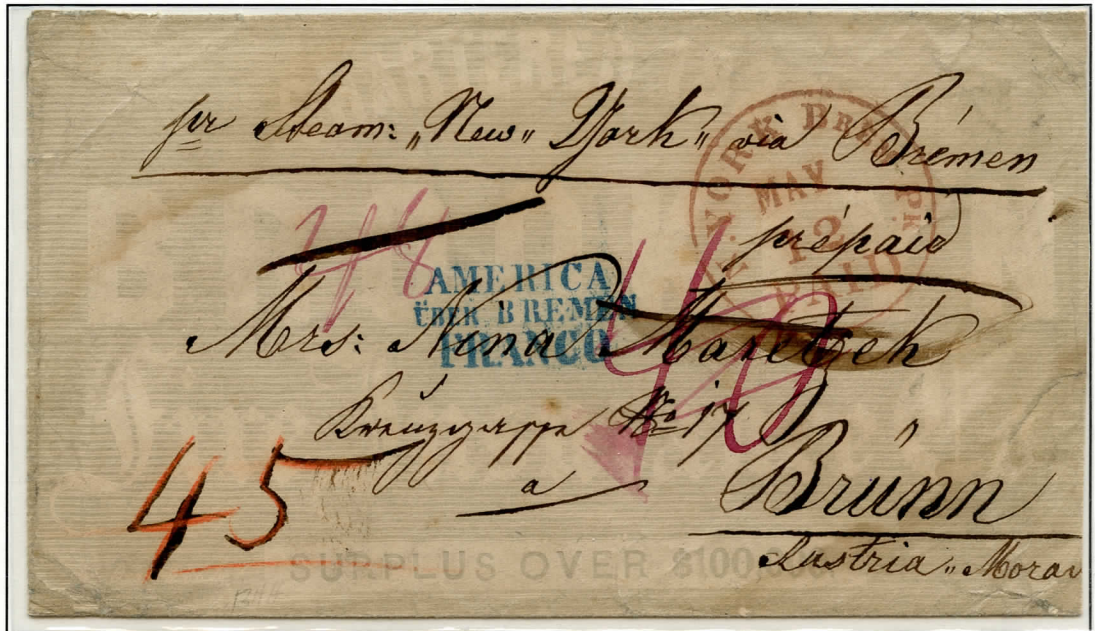 pr Steam: „New„ York„ via Bremen
N. YORK BREM. PK.
MAY
12
PAID
prepaid
AMERICA
ÜBER BREMEN
FRANCO
Mrs: Nina Maretzek
Kreuzgasse No 17
a Brünn
45
Austria„ Morav
SURPLUS OVER $100,